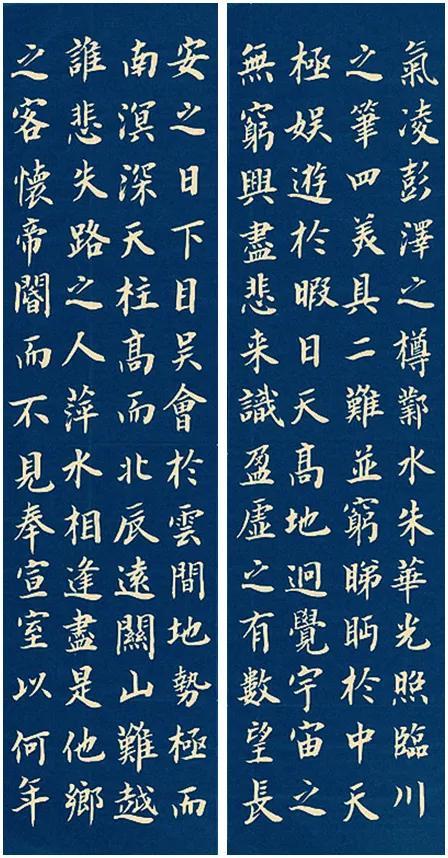 氣凌彭澤之樽鄴水朱華光照臨川
之筆四美具二難並窮睇眄於中天
極娛遊於暇日天高地迥覺宇宙之
無窮興盡悲来識盈虛之有數望長
安之日下目吴會於雲間地勢極而
南溟深天柱高而北辰遠關山難越
誰悲失路之人萍水相逢盡是他鄉
之客懷帝閽而不見奉宣室以何年